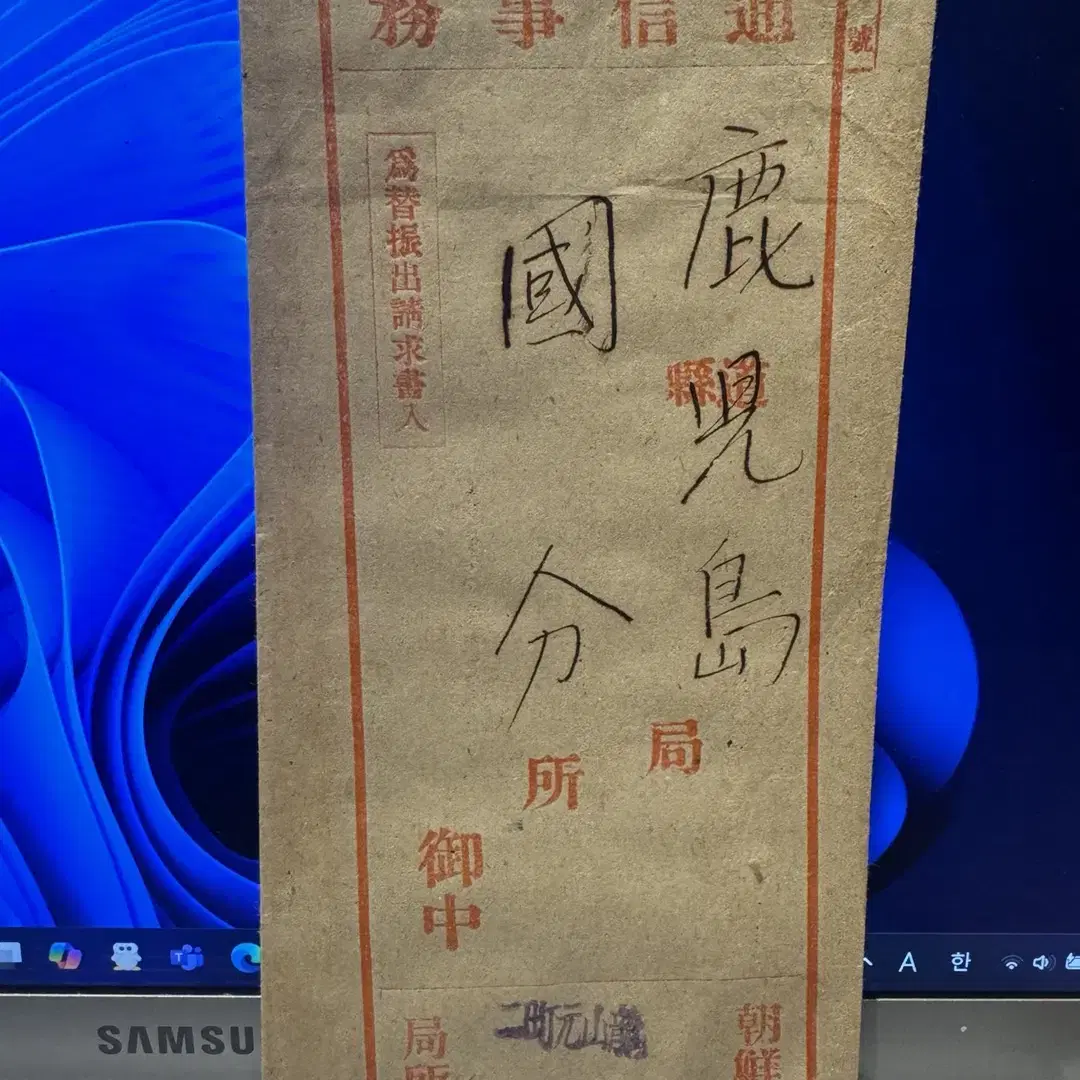 通信事務
號
鹿兒島
道縣
局
國分
所
御中
爲替振出請求書入
朝鮮
龍山元町二
局所
SAMSU
A 한